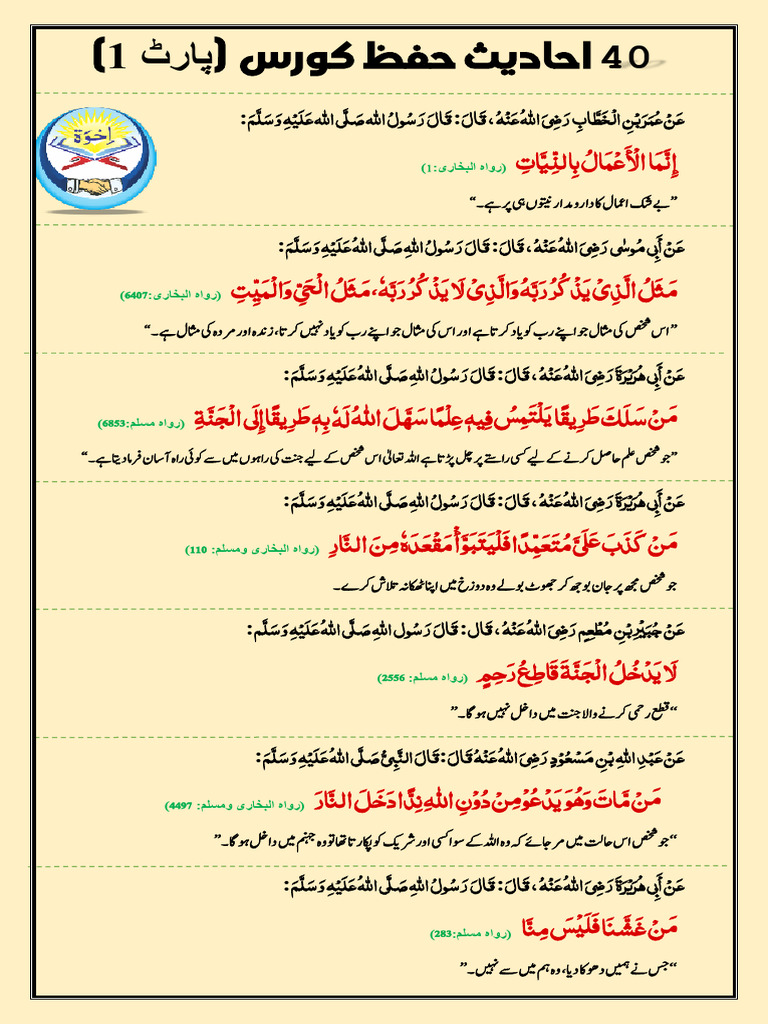 40 احادیث حفظ کورس (پارٹ 1)
اِخوَۃ
عَنْ عُمَرَ بْنِ الْخَطَّابِ رَضِیَ اللہُ عَنْہُ، قَالَ: قَالَ رَسُوْلُ اللہ صَلَّی اللہ عَلَیْہِ وَسَلَّمَ:
إِنَّمَا الْأَعْمَالُ بِالنِّيَّاتِ (رواہ البخاری:1)
”بے شک اعمال کا دارومدار نیتوں ہی پر ہے۔“
عَنْ أَبِی مُوسٰی رَضِیَ اللہُ عَنْہُ، قَالَ: قَالَ رَسُوْلُ اللہِ صَلَّی اللہُ عَلَیْہِ وَسَلَّمَ:
مَثَلُ الَّذِیْ یَذْکُرُ رَبَّہٗ وَالَّذِیْ لَا یَذْکُرُ رَبَّہٗ، مَثَلُ الْحَیِّ وَالْمَیِّتِ (رواہ البخاری:6407)
”اس شخص کی مثال جو اپنے رب کو یاد کرتا ہے اور اس کی مثال جو اپنے رب کو یاد نہیں کرتا، زندہ اور مردہ کی مثال ہے۔“
عَنْ أَبِی ہُرَیْرَۃَ رَضِیَ اللہُ عَنْہُ، قَالَ: قَالَ رَسُوْلُ اللہِ صَلَّی اللہُ عَلَیْہِ وَسَلَّمَ:
مَنْ سَلَكَ طَرِیقًا یَلْتَمِسُ فِیہِ عِلْمًا سَہَّلَ اللہُ لَہٗ بِہٖ طَرِیقًا إِلَی الْجَنَّةِ (رواہ مسلم:6853)
”جو شخص علم حاصل کرنے کے لیے کسی راستے پر چل پڑتا ہے اللہ تعالیٰ اس شخص کے لیے جنت کی راہوں میں سے کوئی راہ آسان فرما دیتا ہے۔“
عَنْ أَبِی ہُرَیْرَۃَ رَضِیَ اللہُ عَنْہُ، قَالَ: قَالَ رَسُوْلُ اللہِ صَلَّی اللہُ عَلَیْہِ وَسَلَّمَ:
مَنْ كَذَبَ عَلَیَّ مُتَعَمِّدًا فَلْیَتَبَوَّأْ مَقْعَدَہٗ مِنَ النَّارِ (رواہ البخاری ومسلم: 110)
جو شخص مجھ پر جان بوجھ کر جھوٹ بولے وہ دوزخ میں اپنا ٹھکانہ تلاش کرے۔
عَنْ جُبَیْرِ بْنِ مُطْعِمٍ رَضِیَ اللہُ عَنْہُ، قَالَ: قَالَ رَسُوْلُ اللہِ صَلَّی اللہُ عَلَیْہِ وَسَلَّمَ:
لَا یَدْخُلُ الْجَنَّةَ قَاطِعُ رَحِمٍ (رواہ مسلم: 2556)
“قطع رحمی کرنے والا جنت میں داخل نہیں ہوگا۔”
عَنْ عَبْدِ اللہِ بْنِ مَسْعُوْدٍ رَضِیَ اللہُ عَنْہُ قَالَ: قَالَ النَّبِیُّ صَلَّی اللہُ عَلَیْہِ وَسَلَّمَ:
مَنْ مَّاتَ وَھُوَ یَدْعُوْ مِنْ دُوْنِ اللہِ نِدًّا دَخَلَ النَّارَ (رواہ البخاری ومسلم: 4497)
“جو شخص اس حالت میں مر جائے کہ وہ اللہ کے سوا کسی اور شریک کو پکارتا تھا تو وہ جہنم میں داخل ہوگا۔”
عَنْ أَبِی ہُرَیْرَۃَ رَضِیَ اللہُ عَنْہُ، قَالَ: قَالَ رَسُوْلُ اللہِ صَلَّی اللہُ عَلَیْہِ وَسَلَّمَ:
مَنْ غَشَّنَا فَلَیْسَ مِنَّا (رواہ مسلم:283)
“جس نے ہمیں دھوکا دیا، وہ ہم میں سے نہیں۔”